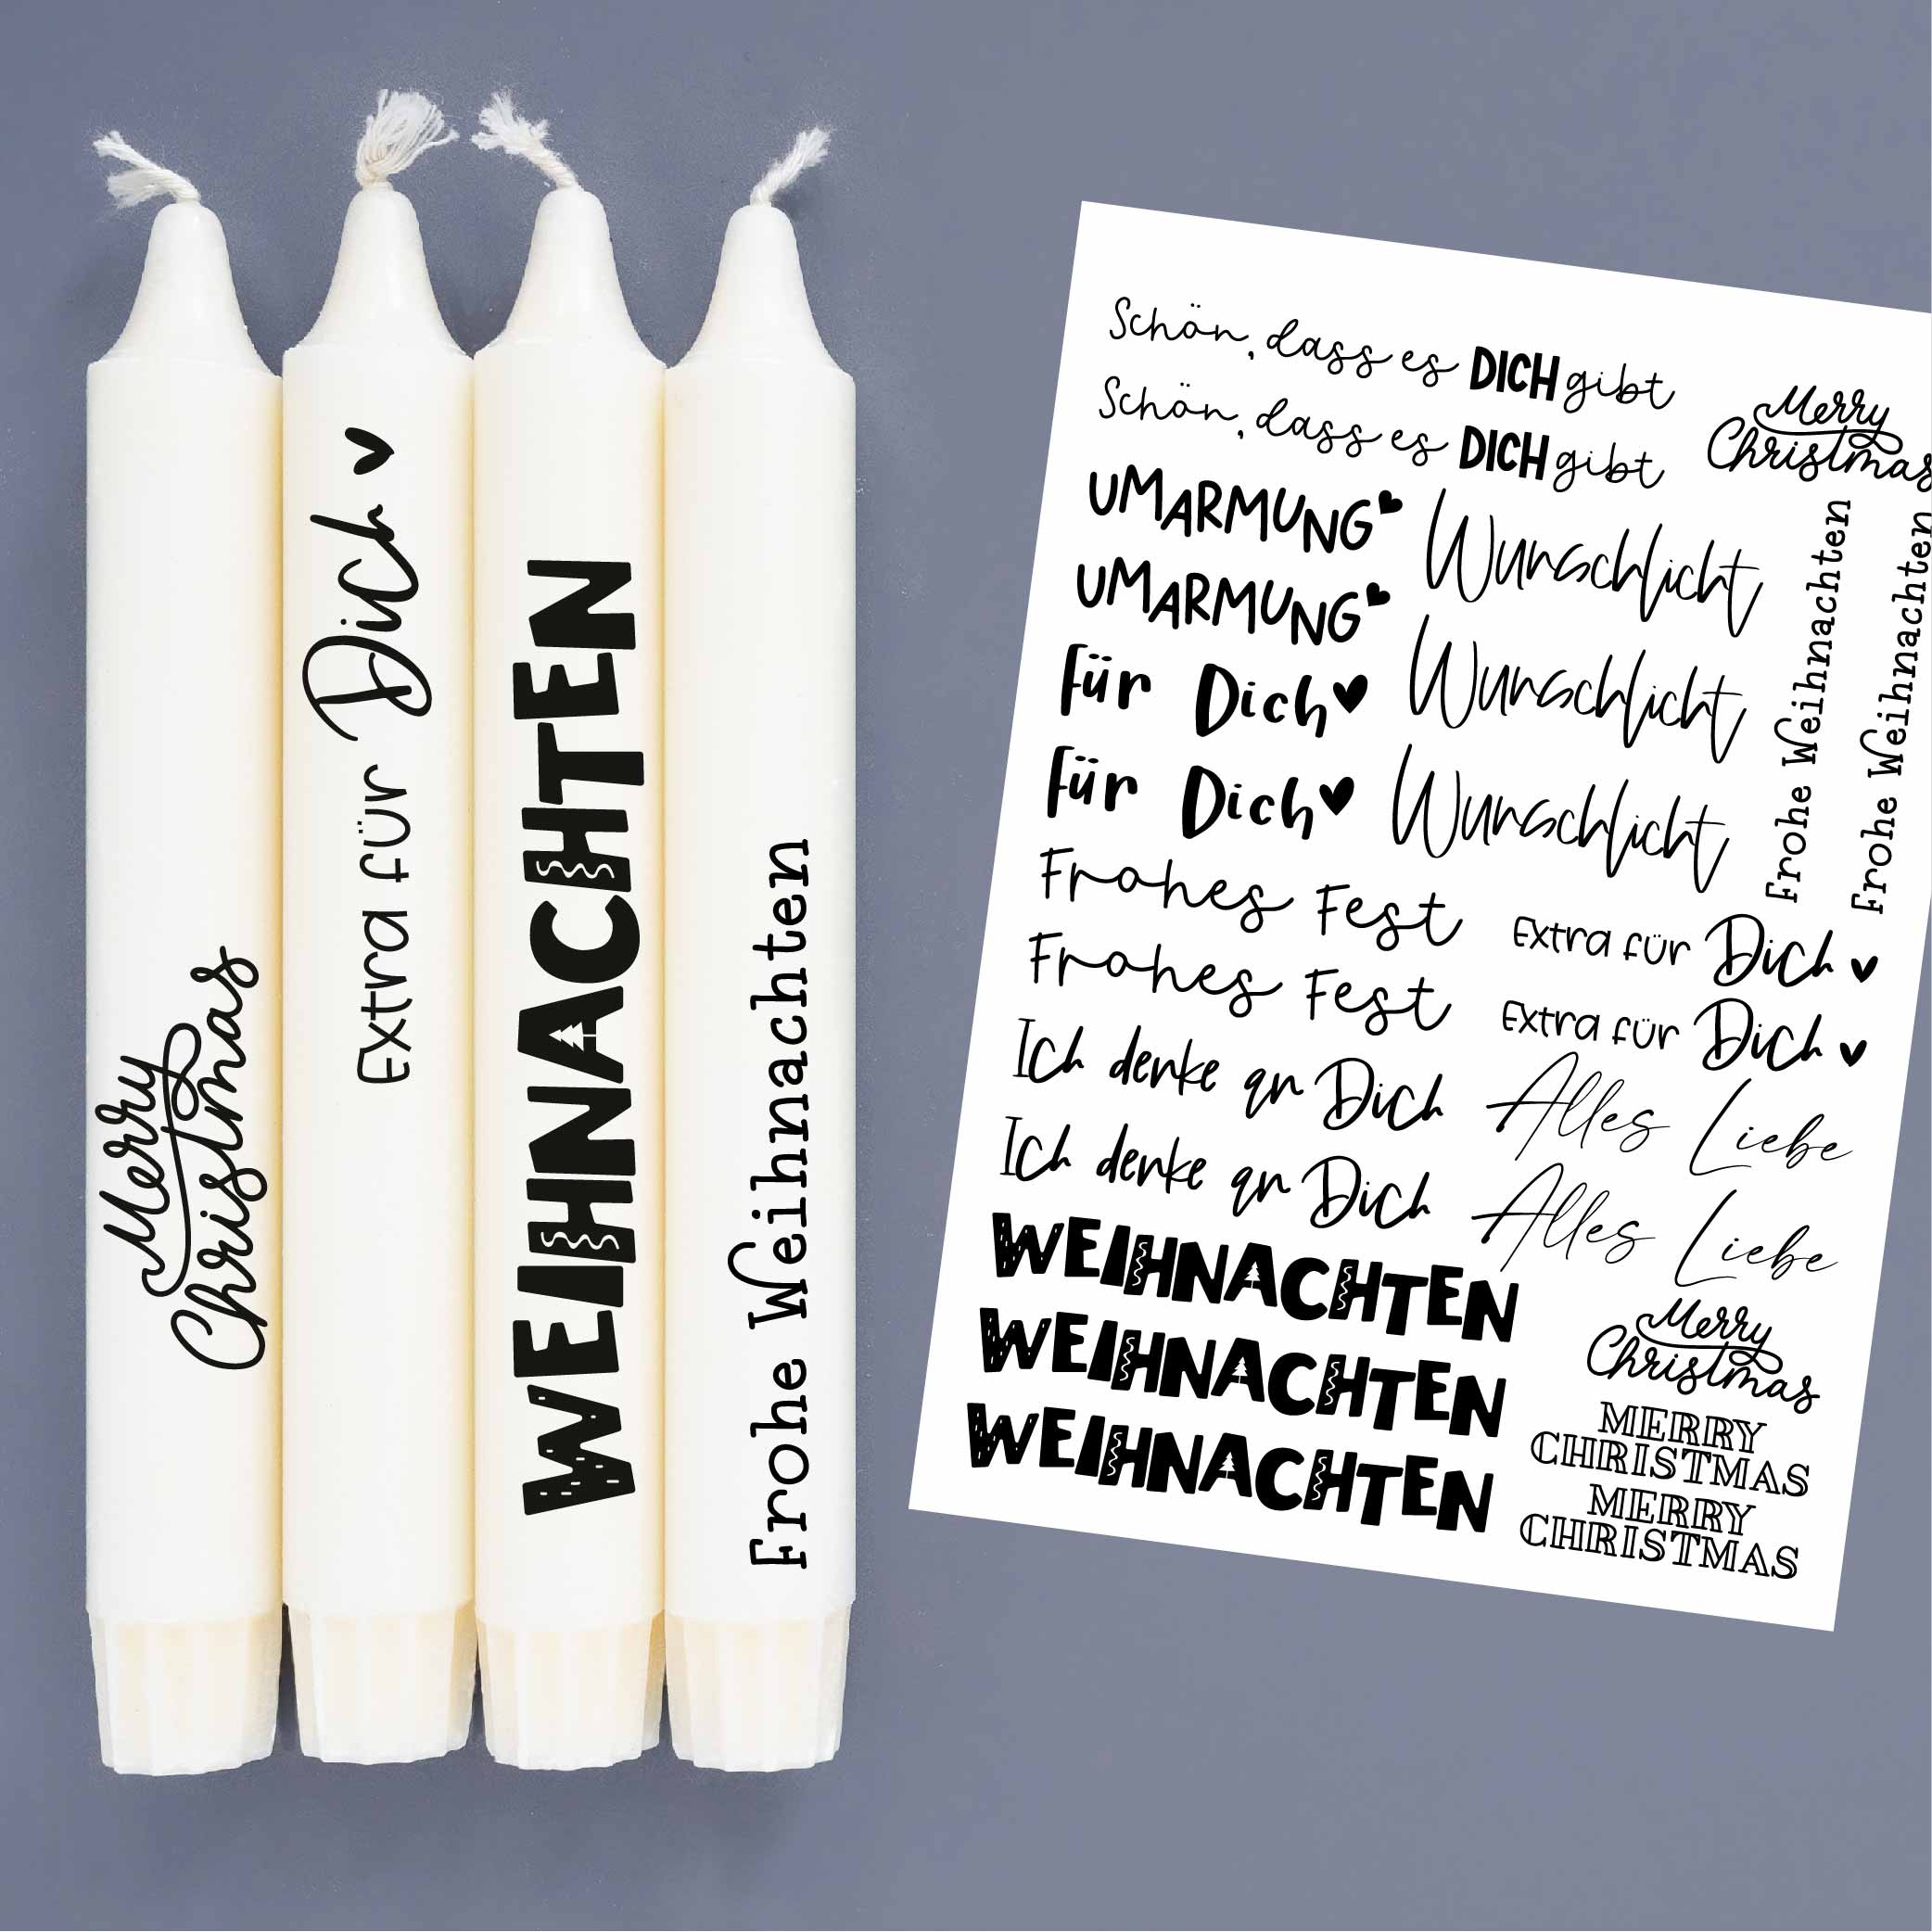 Merry
Christmas
Extra für Dich
WEIHNACHTEN
Frohe Weihnachten
Schön, dass es DICH gibt
Schön, dass es DICH gibt
Merry
Christmas
UMARMUNG
UMARMUNG
Wunschlicht
Wunschlicht
Wunschlicht
Frohe Weihnachten
Frohe Weihnachten
Für Dich
Für Dich
Frohes Fest
Frohes Fest
Extra für Dich
Extra für Dich
Ich denke an Dich
Ich denke an Dich
Alles Liebe
Alles Liebe
WEIHNACHTEN
WEIHNACHTEN
WEIHNACHTEN
Merry
Christmas
MERRY
CHRISTMAS
MERRY
CHRISTMAS